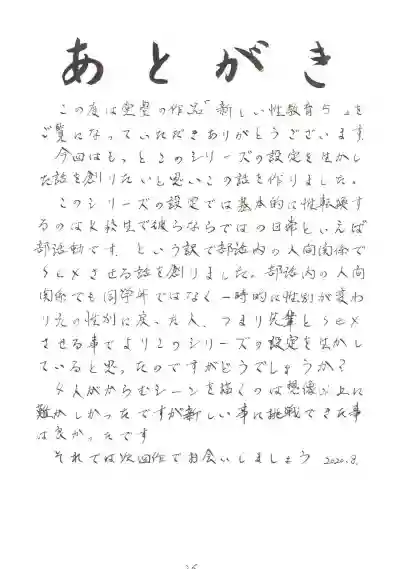 あとがき
この度は堂の作品「新しい性教育5」を
ご覧になっていただきありがとうございます。
今回はもっとこのシリーズの設定を生かし
た話を創りたいと思いこの話を作りました。
このシリーズの設定では基本的に性転換す
るのはK校生で彼らならではの日常といえば
部活動です。という訳で部活内の人間関係で
SEXさせる話を創りました。部活内の人間
関係でも同学年ではなく一時的に性別が変わ
り元の性別に戻った人、つまり先輩とSEX
させる事でよりこのシリーズの設定を生かし
ていると思ったのですがどうでしょうか？
4人がからむシーンを描くのは想像以上に
難かしかったですが新しい事に挑戦できた事
は良かったです
それでは次回作でお会いしましょう 2020.8.